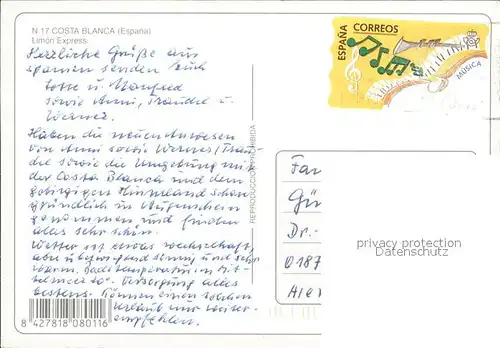 N 17 COSTA BLANCA (España)
Limón Express
Herzliche Grüße aus
Spanien senden Euch
Lotte u. Manfred
sowie Anni, Traudel u.
Werner.
Haben die neuen Anwesen
von Anni sowie Werner/Trau
die sowie die Umgebung mit
der Costa Blanca und dem
gebirgigen Hinnland schon
gründlich in Augenschein
genommen und finden
alles sehr schön.
Wetter ist etwas wechselhaft,
aber überwiegend sonnig und sehr
warm. Badetemperatur im Mit-
telmeer 20°. Versorgung alles
bestens. Können einen solchen
Urlaub nur weiter-
empfehlen.
8 427818 080116
REPRODUCCION PROHIBIDA
ESPAÑA
CORREOS
MÚSICA
Fa
Gü
Dr.-
0187
Aler
privacy protection
Datenschutz